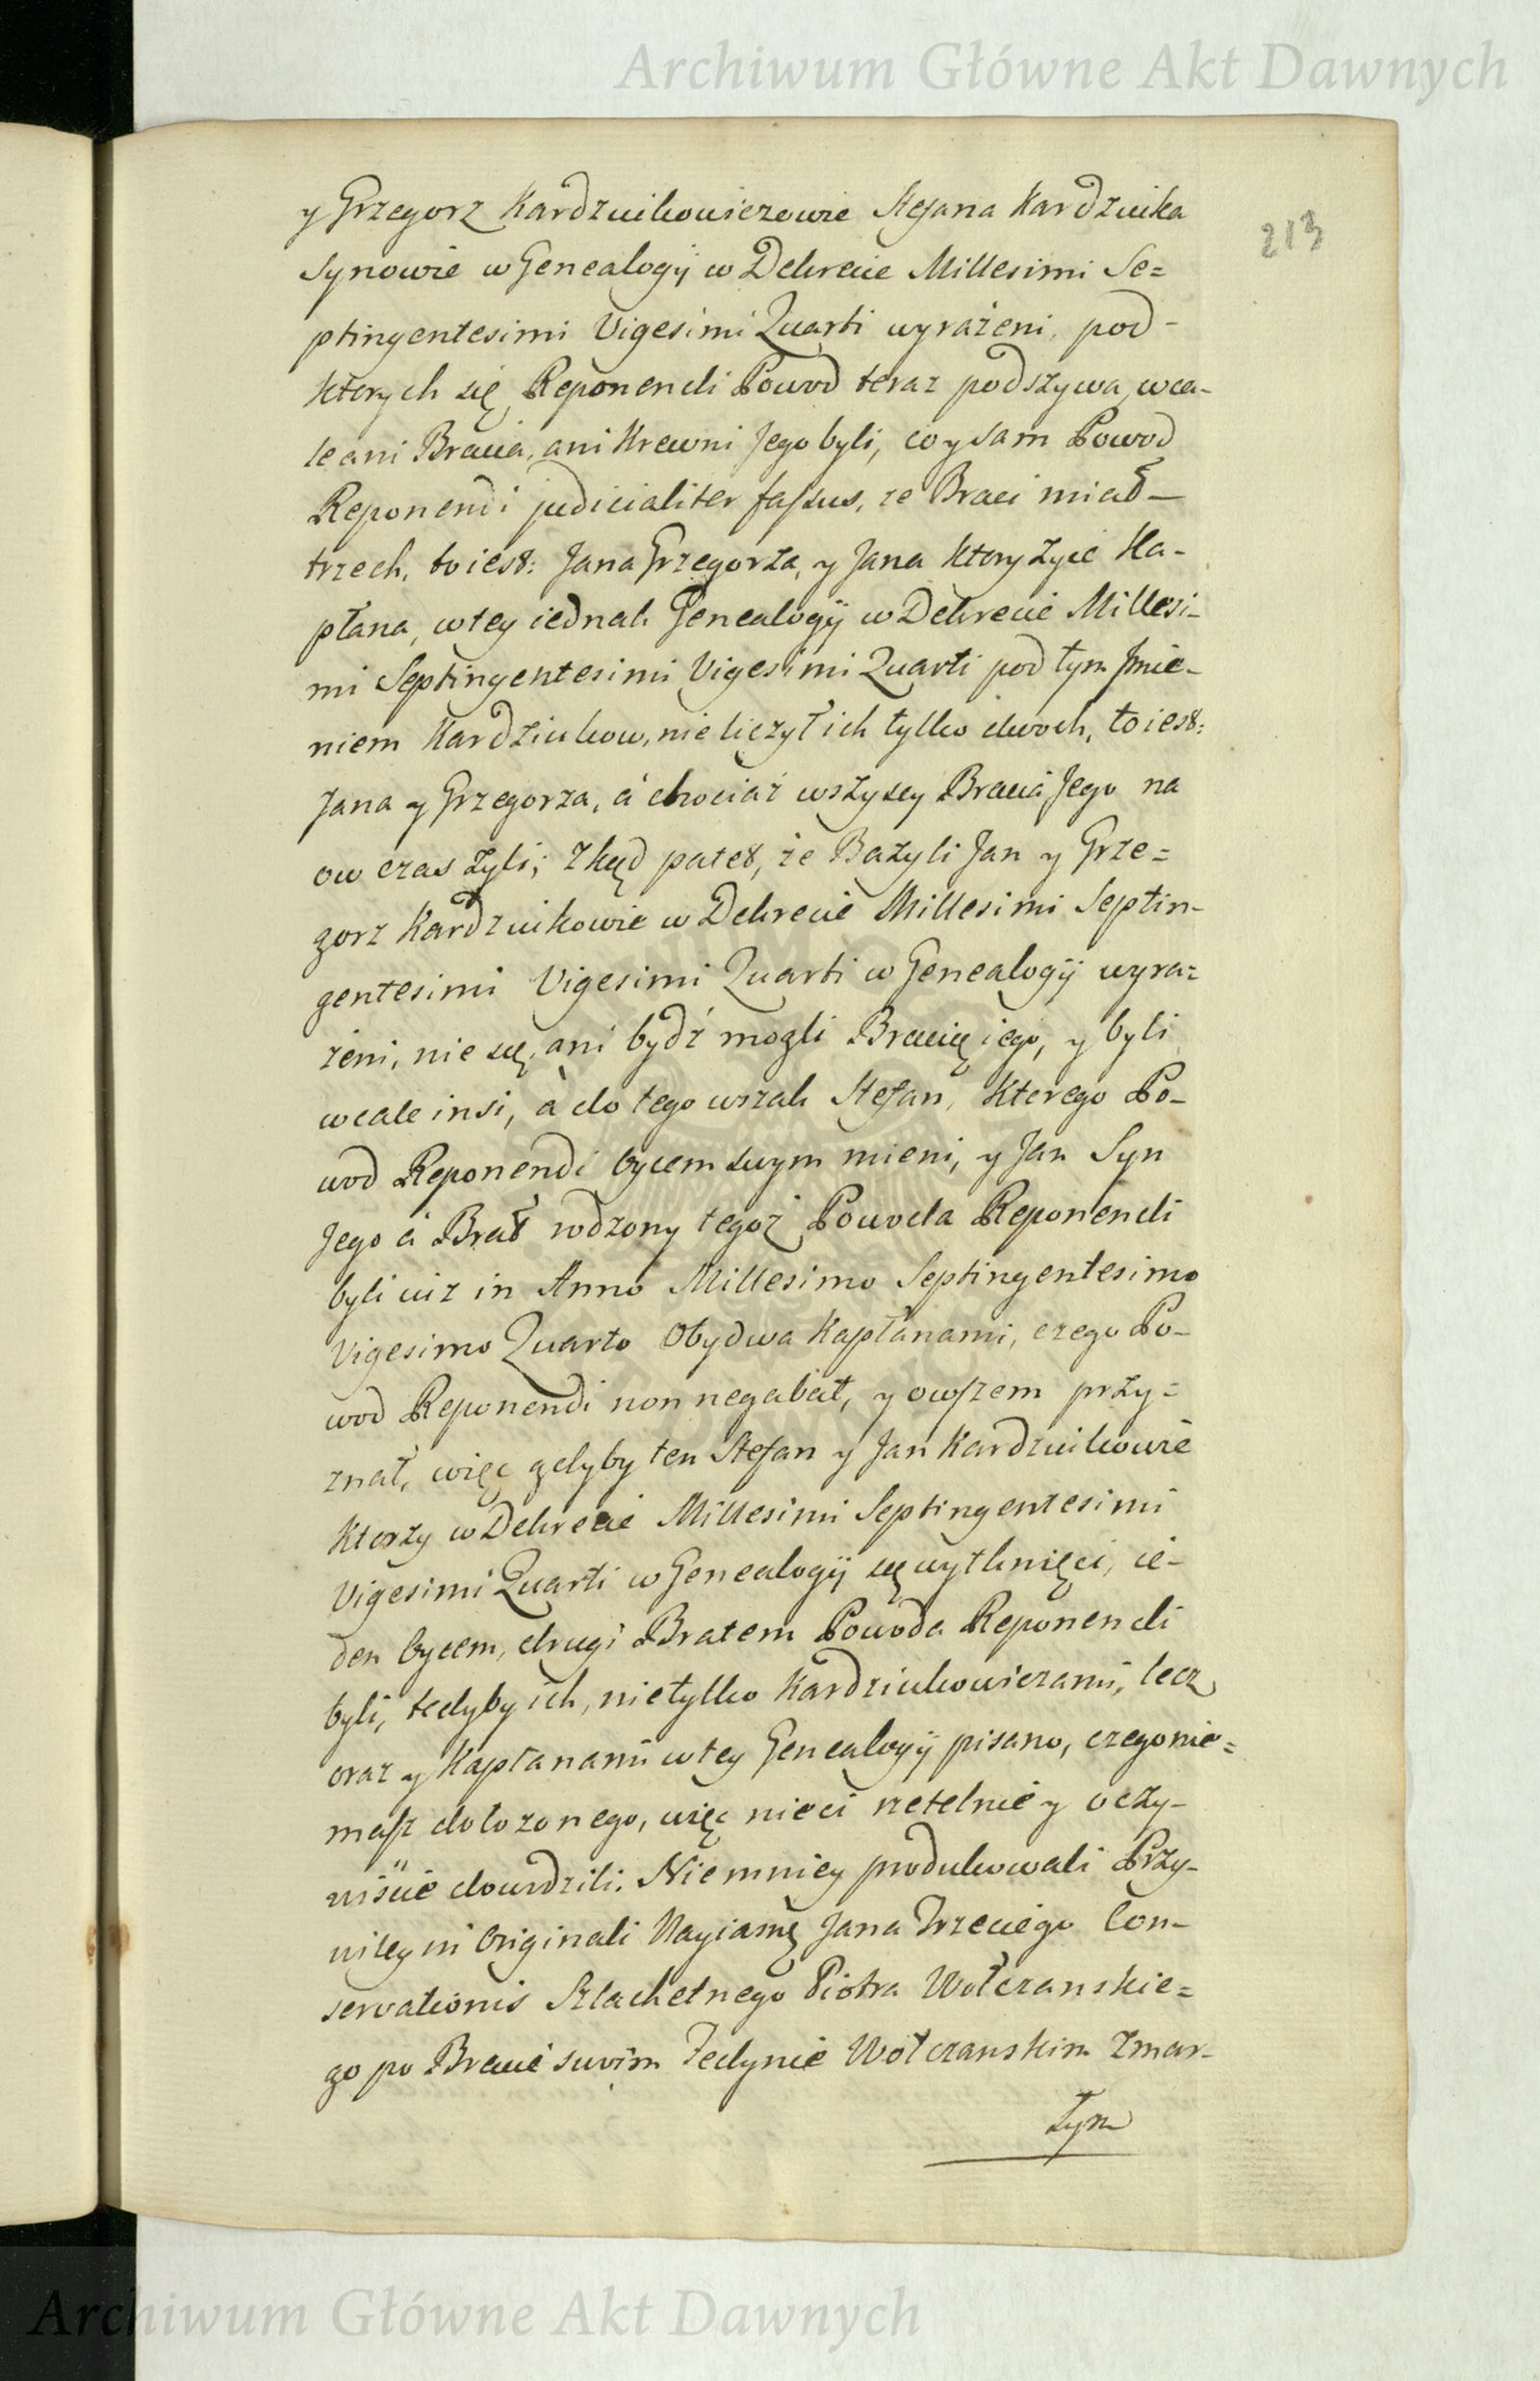 Archiwum Główne Akt Dawnych
213
y Grzegorz Kardziukowiczowie Stefana Kardziuka
Synowie w Genealogij w Dekrecie Millesimi Se=
ptingentesimi Vigesimi Quarti wyrażeni, pod-
ktorych się Reponendi Powod teraz podszywa, wca-
le ani Bracia, ani Krewni Jego byli, co y sam Powod
Reponendi judicialiter fassus, ze Braci miał-
trzech, to iest: Jana Grzegorza, y Jana ktory zyie Ka-
płana, w tey iednak Genealogij w Dekrecie Millesi-
mi Septingentesimi Vigesimi Quarti pod tym Jmie-
niem Kardziukow, nie liczył ich tylko dwoch, to iest:
Jana y Grzegorza, á chociaż wszyscy Bracia Jego na
ow czas żyli; zkąd patet, że Bazyli Jan y Grze=
gorz Kardziukowie w Dekrecie Millesimi Septin-
gentesimi Vigesimi Quarti w Genealogij wyra=
żeni, nie są, ani bydź mogli Bracią iego, y byli
wcale insi, à do tego wszak Stefan, ktorego Po-
wod Reponendi Oycem swym mieni, y Jan Syn
Jego á Brat rodzony tegoż Powoda Reponendi
byli iuż in Anno Millesimo Septingentesimo
Vigesimo Quarto Obydwa Kapłanami, czego Po-
wod Reponendi non negabat, y owszem przy=
znał, więc gdyby ten Stefan y Jan Kardziukowie
ktorzy w Dekrecie Millesimi Septingentesimi
Vigesimi Quarti w Genealogij są wytknięci, ie-
den Oycem, drugi Bratem Powoda Reponendi
byli, tedyby ich, nie tylko Kardziukowiczami, lecz
oraz y Kapłanami w tey Genealogij pisano, czego nie=
masz dołozonego, więc nieci rzetelnie y oczy-
wiście dowodzili. Niemniey produkowali Przy-
wiley in Originali Nayiasnę Jana Trzeciego Con-
servationis Szlachetnego Piotra Wołczanskie=
go po Bracie swoim Fedynie Wołczanskim Zmar-
łym
Archiwum Główne Akt Dawnych